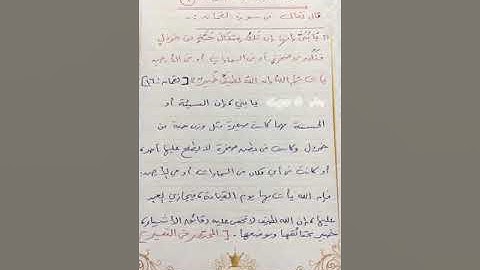 قال تعالى في سورة لقمان :-
" يَا بُنَيَّ إنها إن تكُ مثقال حبّةٍ من خردلٍ
فتكُن في صخرةٍ أو في السماوات أو في الأرض
يأت بها اللهُ إن الله لطيفٌ خبير " [لقمان:١٦]
يا بني، إن السيئة أو
الحسنة مهما كانت صغيرة مثل وزن حبة من
خردل وكانت في بطن صخرة لا يطلع عليها أحد،
أو كانت في أي مكان في السماوات أو في الأرض
فإن الله يأت بها يوم القيامة، فيجازي العبد
عليها، إن الله لطيف لا تخفى عليه دقائق الأشياء،
خبير بحقائقها وموضعها. [المختصر في التفسير]